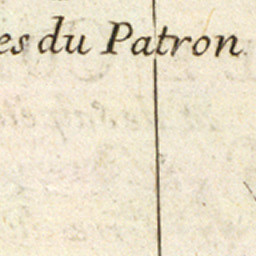 es du Patron